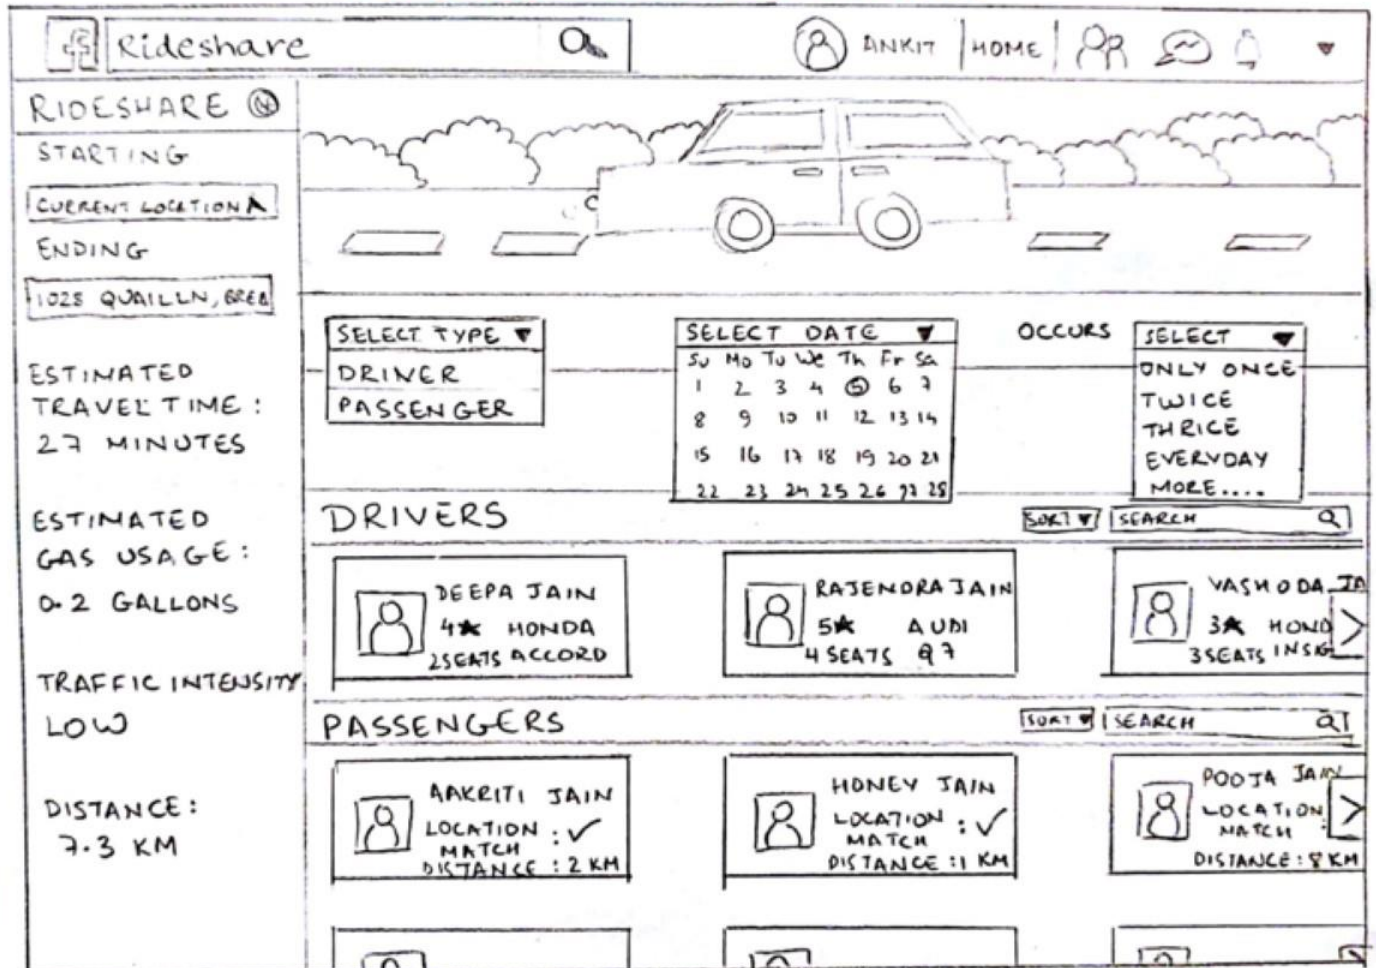 f Rideshare
ANKIT HOME
RIDESHARE
STARTING
CURRENT LOCATION
ENDING
1028 QUAILLN, BREA
ESTIMATED
TRAVEL TIME :
27 MINUTES
ESTIMATED
GAS USAGE :
0.2 GALLONS
TRAFFIC INTENSITY
LOW
DISTANCE :
7.3 KM
SELECT TYPE
DRIVER
PASSENGER
SELECT DATE
Su Mo Tu We Th Fr Sa
1 2 3 4 5 6 7
8 9 10 11 12 13 14
15 16 17 18 19 20 21
22 23 24 25 26 27 28
OCCURS
SELECT
ONLY ONCE
TWICE
THRICE
EVERYDAY
MORE....
DRIVERS
SORT SEARCH
DEEPA JAIN
4★ HONDA
2SEATS ACCORD
RAJENDRA JAIN
5★ AUDI
4 SEATS Q7
YASHODA JA
3★ HOND
3SEATS INSIG
PASSENGERS
SORT SEARCH
AAKRITI JAIN
LOCATION : ✓
MATCH
DISTANCE : 2 KM
HONEY JAIN
LOCATION : ✓
MATCH
DISTANCE : 1 KM
POOJA JAIN
LOCATION :
MATCH
DISTANCE : 8 KM